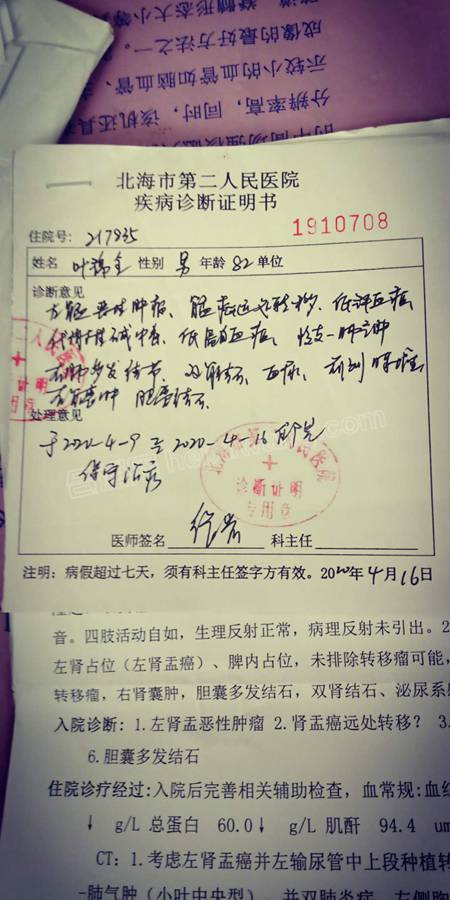 道、脊髓形态大小等
成像的最好方法之一。
示较小的血管如脑血管、
分辨率高,同时,该机还具
北海市第二人民医院
疾病诊断证明书
1910708
住院号: 217835
姓名 叶锦全 性别 男 年龄 82 单位
诊断意见
恶性肿瘤、
低蛋白血症、
代谢性 中毒、低 血症、 慢支-肺气肿
右肺多发结节、双肾结石、血尿、前列腺
右肾囊肿 胆囊结石
处理意见
于2020-4-9 至 2020-4-16 我院
保守治疗
北海市第 人民医院
诊断证明
专用章
医师签名 科主任
注明:病假超过七天,须有科主任签字方有效。2020年4月16日
音。四肢活动自如,生理反射正常,病理反射未引出。2
左肾占位(左肾盂癌)、脾内占位,未排除转移瘤可能,
转移瘤,右肾囊肿,胆囊多发结石,双肾结石、泌尿系感
入院诊断:1.左肾盂恶性肿瘤 2.肾盂癌远处转移? 3.
6.胆囊多发结石
住院诊疗经过:入院后完善相关辅助检查,血常规:血红
↓ g/L 总蛋白 60.0↓ g/L 肌酐 94.4 um
CT:1.考虑左肾盂癌并左输尿管中上段种植转
-肺气肿(小叶中央型),并双肺炎症,左侧胸